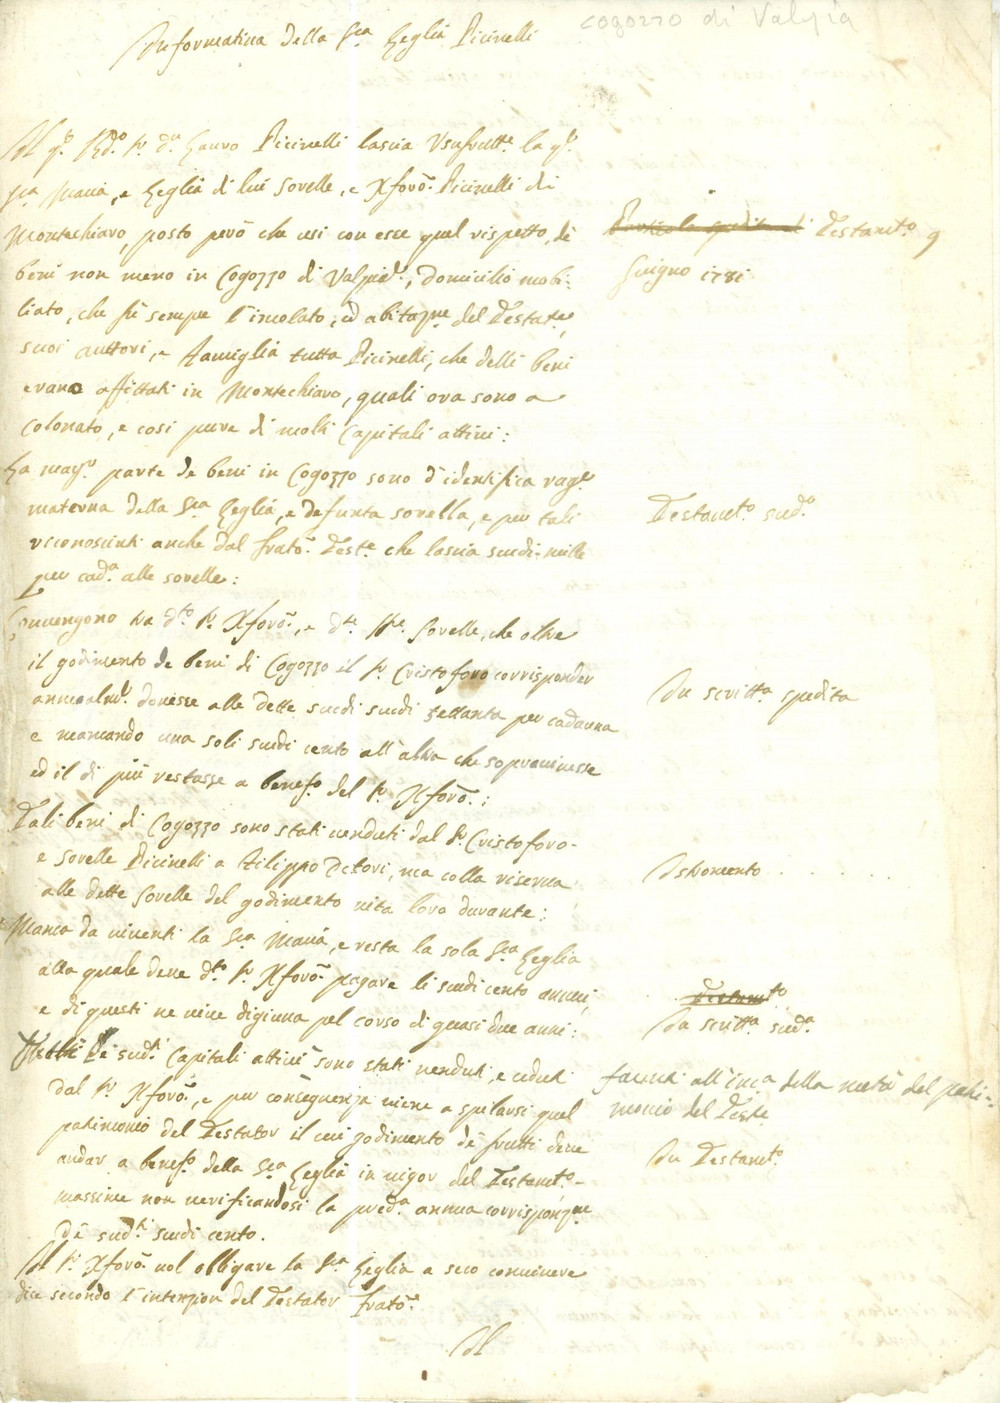 cogozzo di Valpia
Informativa della Sra Leglia Picinelli
Il qm Rdo Sr Dn Lauro Picinelli lascia Usufrutte la qm
Sra Maria, e Leglia di lui Sorelle, e Xforo Picinelli di
Montechiaro, posto però che usi con esse quel rispetto, de
beni non meno in Cogozzo di Valpia, domicilio mobi-
liato, che fù sempre l'incolato, ed abitazne del Testate,
suoi auttori, e Famiglia tutta Picinelli, che delli beni
erano affittati in Montechiaro, quali ora sono a
colonato, e così pure di molti Capitali attivi:
Particola spedita di Testamto 9
Giugno 1781
La magr parte de beni in Cogozzo sono d'identifica ragne
materna della Sra Leglia, e defunta sorella, e per tali
riconosciuti anche dal frato Teste che lascia scudi mille
per cada alle sorelle:
Testamto sudo
Convengono tra do Sr Xforo, e dte Sre Sorelle, che oltre
il godimento de beni di Cogozzo il Sr Cristoforo corrisponder
annualmte dovesse alle dette scudi scudi settanta per cadauna
e mancando una soli scudi cento all'altra che sopravivesse
ed il di più restasse a benefo del Sr Xforo:
Da scritta spedita
Tali beni di Cogozzo sono stati venduti dal Sr Cristoforo
e Sorelle Picinelli a Filippo Pitori, ma colla riserva
alle dette Sorelle del godimento vita loro durante:
Istromento . . . . . .
Manca da viventi la Sra Maria, e resta la sola Sra Leglia
alla quale deve do Sr Xforo pagare li scudi cento annui,
e di questi ne vive digiuna pel corso di quasi due anni:
Testamto
Da scritta suda
Tutti li sudi Capitali attivi sono stati venduti, e ceduti
dal Sr Xforo, e per conseguenza viene a spilarsi quel
patrimonio del Testator il cui godimento de frutti deve
andar a benefo della Sra Leglia in vigor del Testamto
massime non verificandosi la preda annua corrisponzne
de sudi scudi cento.
facenti all'inca della metà del patri-
monio del Teste
Da Testamto
Il Sr Xforo vol obligare la Sra Leglia a seco convivere
dice secondo l'intenzion del Testator frato
Il